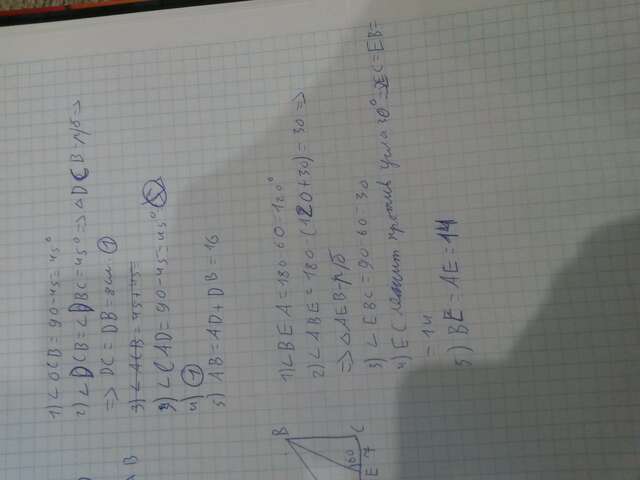 1) ∠DCB = 90-45=45°
2) ∠DCB = ∠DBC = 45° => △DCB-р/б =>
=> DC = DB = 8см. ①
3) ∠ACB = 45+45=
3) ∠CAD = 90-45=45°
4) ①
5) AB = AD + DB = 16
B
1) ∠BEA = 180 60 = 120°
2) ∠ABE = 180-(120+30) = 30 =>
=> △AEB-р/б
3) ∠EBC = 90 60 = 30
4) EC лежит против угла 30° => EC = EB =
= 14
5) BE = AE = 14
B
60
E 7 C